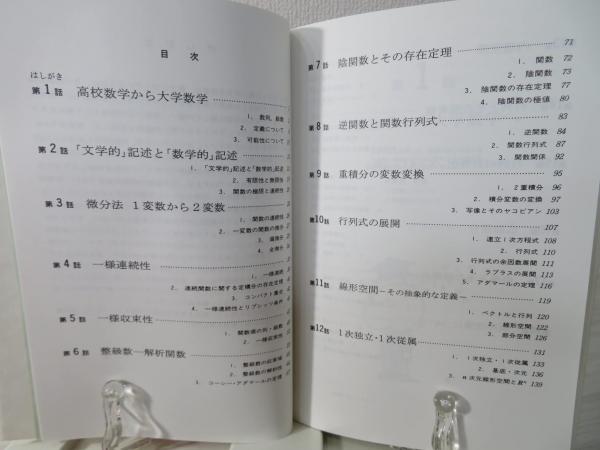 目 次
はしがき
第1話 高校数学から大学数学
1. 数列，級数
2. 定義について
3. 可能性について
第2話 「文学的」記述と「数学的」記述
1. 「文学的」記述と「数学的」記述
2. 有限性と無限性
3. 関数の極限と連続性
第3話 微分法 1変数から2変数
1. 関数の連続性
2. 一変数の関数の微分
3. 偏微分
4. 全微分
第4話 一様連続性
1. 一様連続
2. 連続関数に関する定積分の存在定理
3. コンパクト集合
4. 一様連続性とリプシッツ条件
第5話 一様収束性
1. 関数項の列・級数
2. 一様収束性
第6話 整級数―解析関数
1. 整級数の収束域
2. 整級数の解析性
3. コーシー・アダマールの定理
第7話 陰関数とその存在定理 71
1. 関数 72
2. 陰関数 73
3. 陰関数の存在定理 77
4. 陰関数の極値 80
第8話 逆関数と関数行列式 83
1. 逆関数 84
2. 関数行列式 87
3. 関数関係 92
第9話 重積分の変数変換 95
1. 2重積分 96
2. 積分変数の変換 97
3. 写像とそのヤコビアン 103
第10話 行列式の展開 107
1. 連立1次方程式 108
2. 行列式 110
3. 行列式の余因数展開 111
4. ラプラスの展開 113
5. アダマールの定理 116
第11話 線形空間―その抽象的な定義― 119
1. ベクトルと行列 120
2. 線形空間 122
3. 部分空間 126
第12話 1次独立・1次従属 131
1. 1次独立・1次従属 133
2. 基底・次元 136
3. n次元線形空間とRⁿ 139